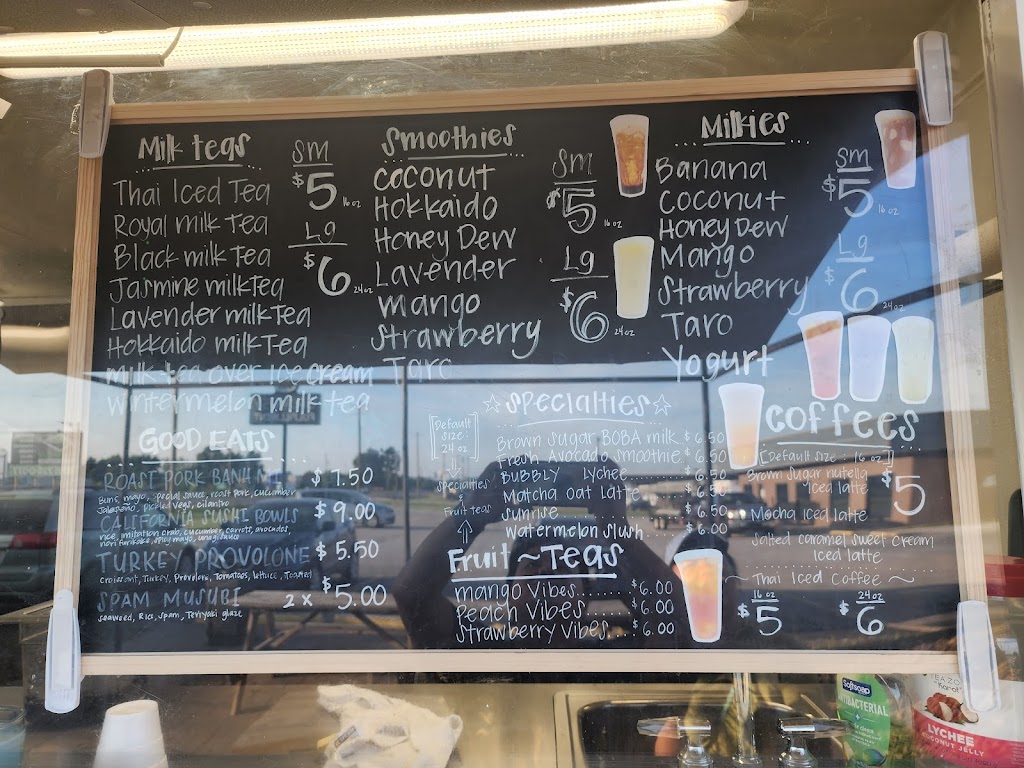 Milk teas
SM
$5 16 oz
Lg
$6 24 oz
Thai Iced Tea
Royal milk Tea
Black milk Tea
Jasmine milk Tea
Lavender milk Tea
Hokkaido milk Tea
milk tea over Ice cream
Wintermelon milk tea
Smoothies
SM
$5 16 oz
Lg
$6 24 oz
coconut
Hokkaido
Honey Dew
Lavender
mango
Strawberry
Taro
Milkies
SM
$5 16 oz
Lg
$6 24 oz
Banana
Coconut
Honey Dew
Mango
Strawberry
Taro
Yogurt
GOOD EATS
ROAST PORK BANH MI $7.50
Buns, mayo, special sauce, roast Pork, cucumber
Jalapeño, pickled vegs, cilantro
CALIFORNIA SUSHI BOWLS $9.00
rice, imitation crab, cucumber, carrots, avocados,
nori furikake, spicy mayo, unagi sauce
TURKEY PROVOLONE $5.50
croissant, Turkey, Provolone, Tomatoes, lettuce, Toasted
SPAM MUSUBI 2x $5.00
seaweed, Rice, Spam, Teriyaki glaze
[Default
size:
24 oz]
Specialties
&
Fruit teas
☆Specialties☆
Brown Sugar BOBA milk $6.50
Fresh Avocado smoothie $6.50
BUBBLY Lychee $6.50
Matcha oat Latte $6.50
sunrise $6.50
Watermelon slush $6.00
Fruit~Teas
mango Vibes........$6.00
Peach Vibes $6.00
Strawberry Vibes...$6.00
Coffees
[Default size: 16 oz]
Brown Sugar nutella
Iced latte
$5
Mocha iced latte
Salted caramel sweet cream
Iced latte
~Thai Iced Coffee~
16 oz
$5
24 oz
$6
Softsoap
ANTIBACTERIAL
LYCHEE
COCONUT JELLY